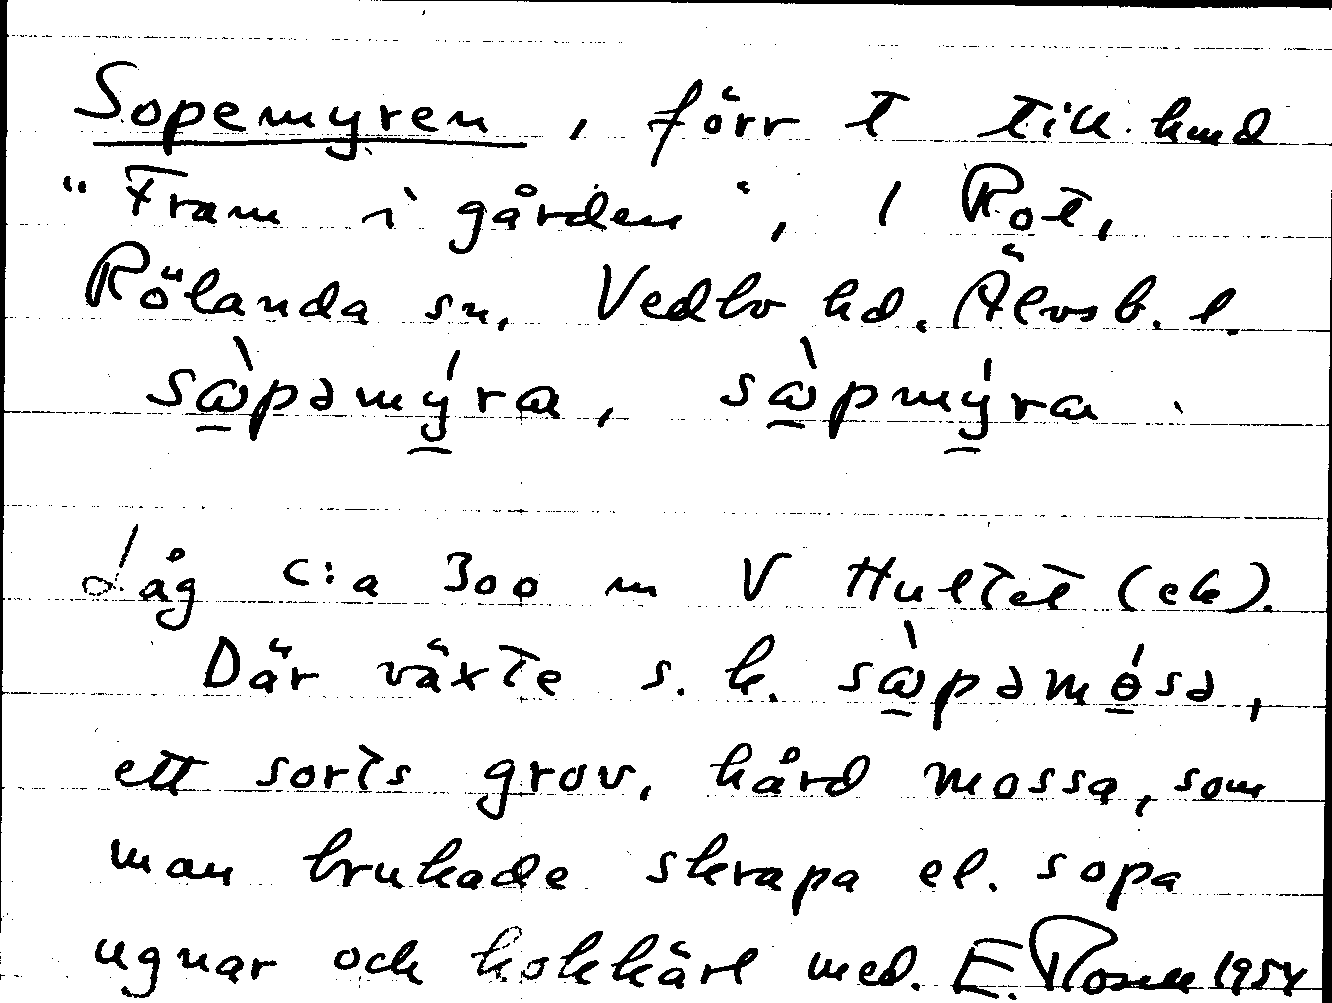 Sopemyren, förr t till. hmd
"Fram i gården", 1 Rot,
Rölanda sn, Vedbo hd. Älvsb. l.
sὼpəmýra, sὼpmýra.
Låg c:a 300 m V Hultet (ek).
Där växte s. k. sὼpəmósə,
ett sorts grov, hård mossa, som
man brukade skrapa el. sopa
ugnar och kokkärl med. E. Rosell 1954